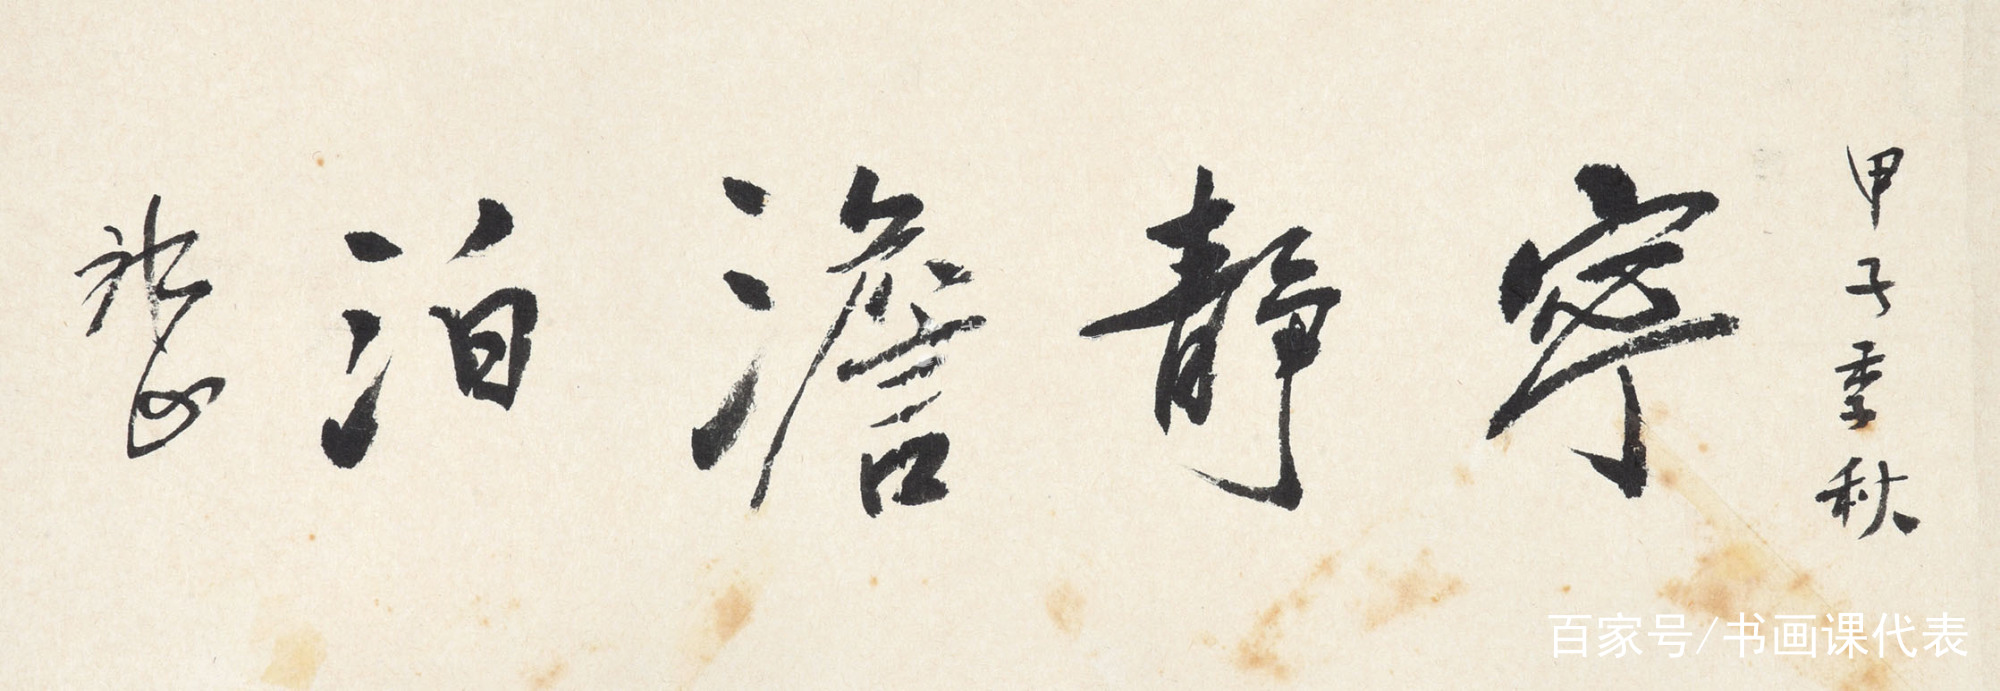 甲子季秋
寧静澹泊
百家号/书画课代表